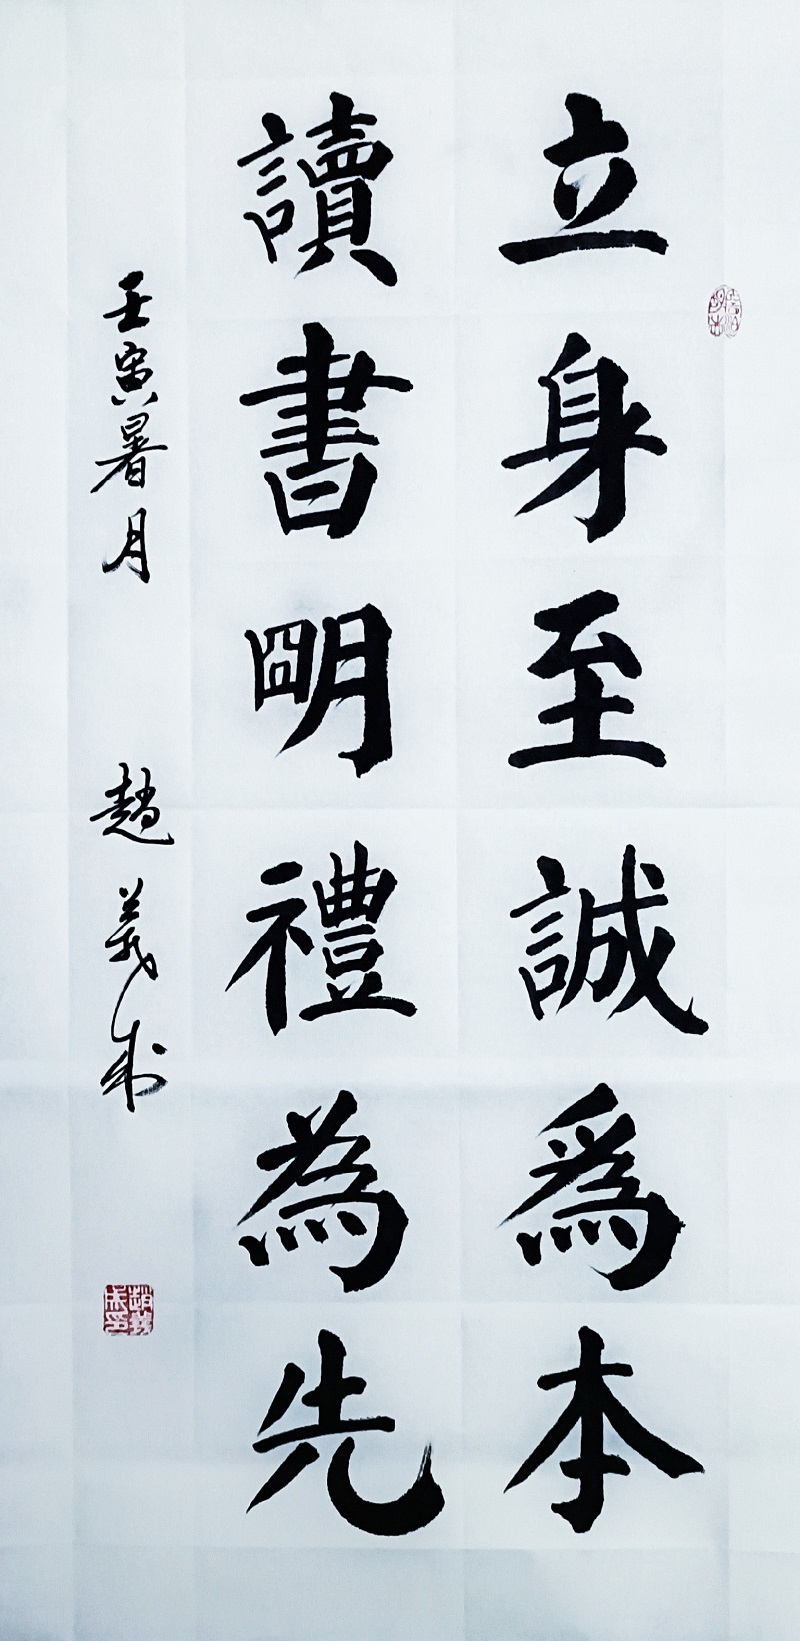 立身至誠爲本
讀書明禮為先
壬寅暑月 趙義成